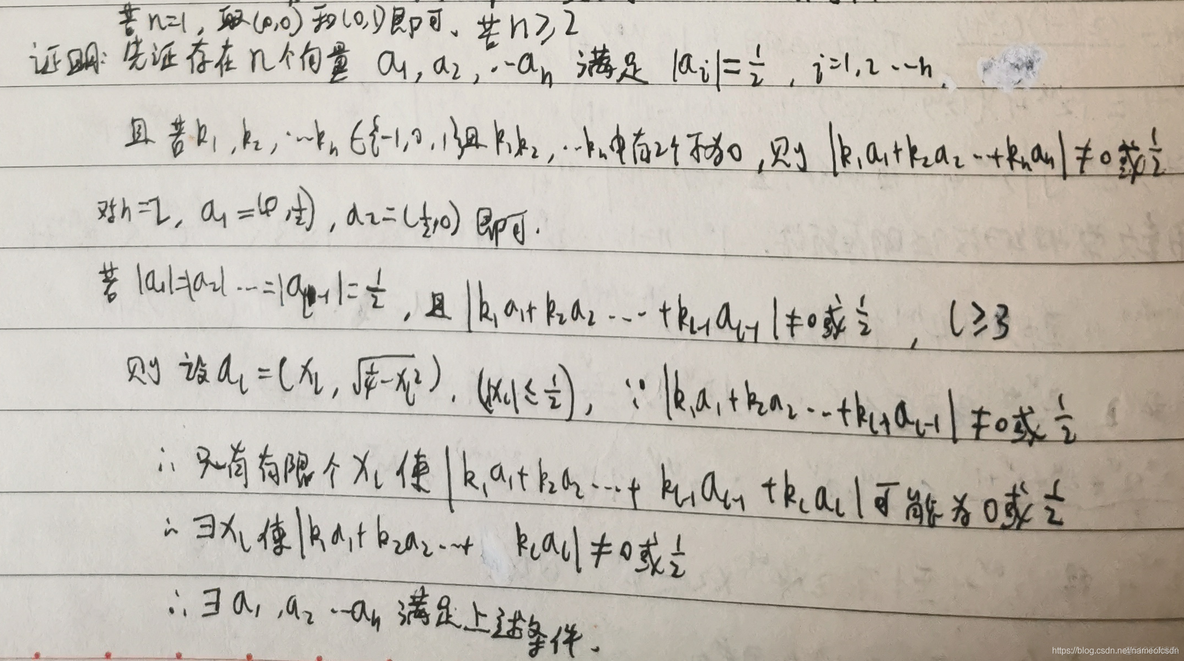 若n=1,取(0,0)和(0,1)即可、若n≥2
证明:先证存在n个向量 a₁, a₂, ‥aₙ 满足 |aᵢ|=1/2, i=1,2‥n.
且若k₁,k₂,…kₙ∈{-1,0,1}且k₁k₂,…kₙ中有2个不为0,则|k₁a₁+k₂a₂…+kₙaₙ|≠0或1/2
对n=2, a₁=(0,1/2), a₂=(1/2,0)即可.
若|a₁|=|a₂|…=|a_{l-1}|=1/2, 且|k₁a₁+k₂a₂…+k_{l-1}a_{l-1}|≠0或1/2, l≥3
则设a_l=(x_l, √(1/4-x_l²)). (|x_l|≤1/2), ∵|k₁a₁+k₂a₂…+k_{l-1}a_{l-1}|≠0或1/2
∴只有有限个x_l使|k₁a₁+k₂a₂…+k_{l-1}a_{l-1}+k_la_l|可能为0或1/2
∴∃x_l使|k₁a₁+k₂a₂…+k_la_l|≠0或1/2
∴∃a₁,a₂…aₙ满足上述条件.
https://blog.csdn.net/nameofcsdn